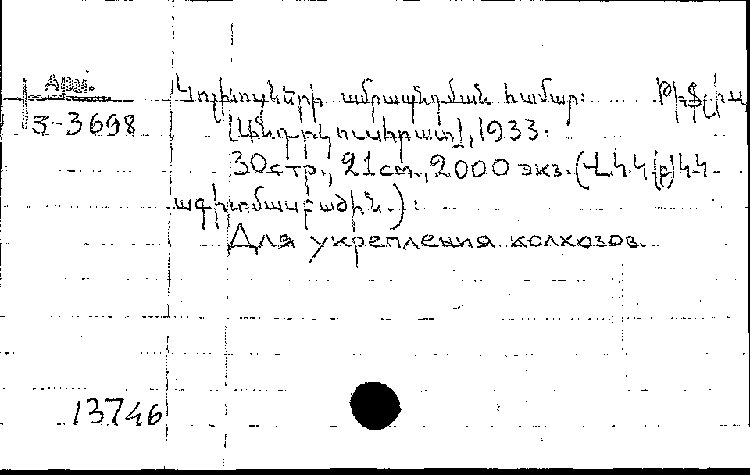 Арм.
3-3698
Կոլխոզների ամրապնդման համար: Թիֆլիս
[Անդրկուսհրատ], 1933.
30 стр., 21 см., 2000 экз. (ՎԼԿԿ(բ)ԿԿ
ագիտմասբաժին.):
Для укрепления колхозов.
13746